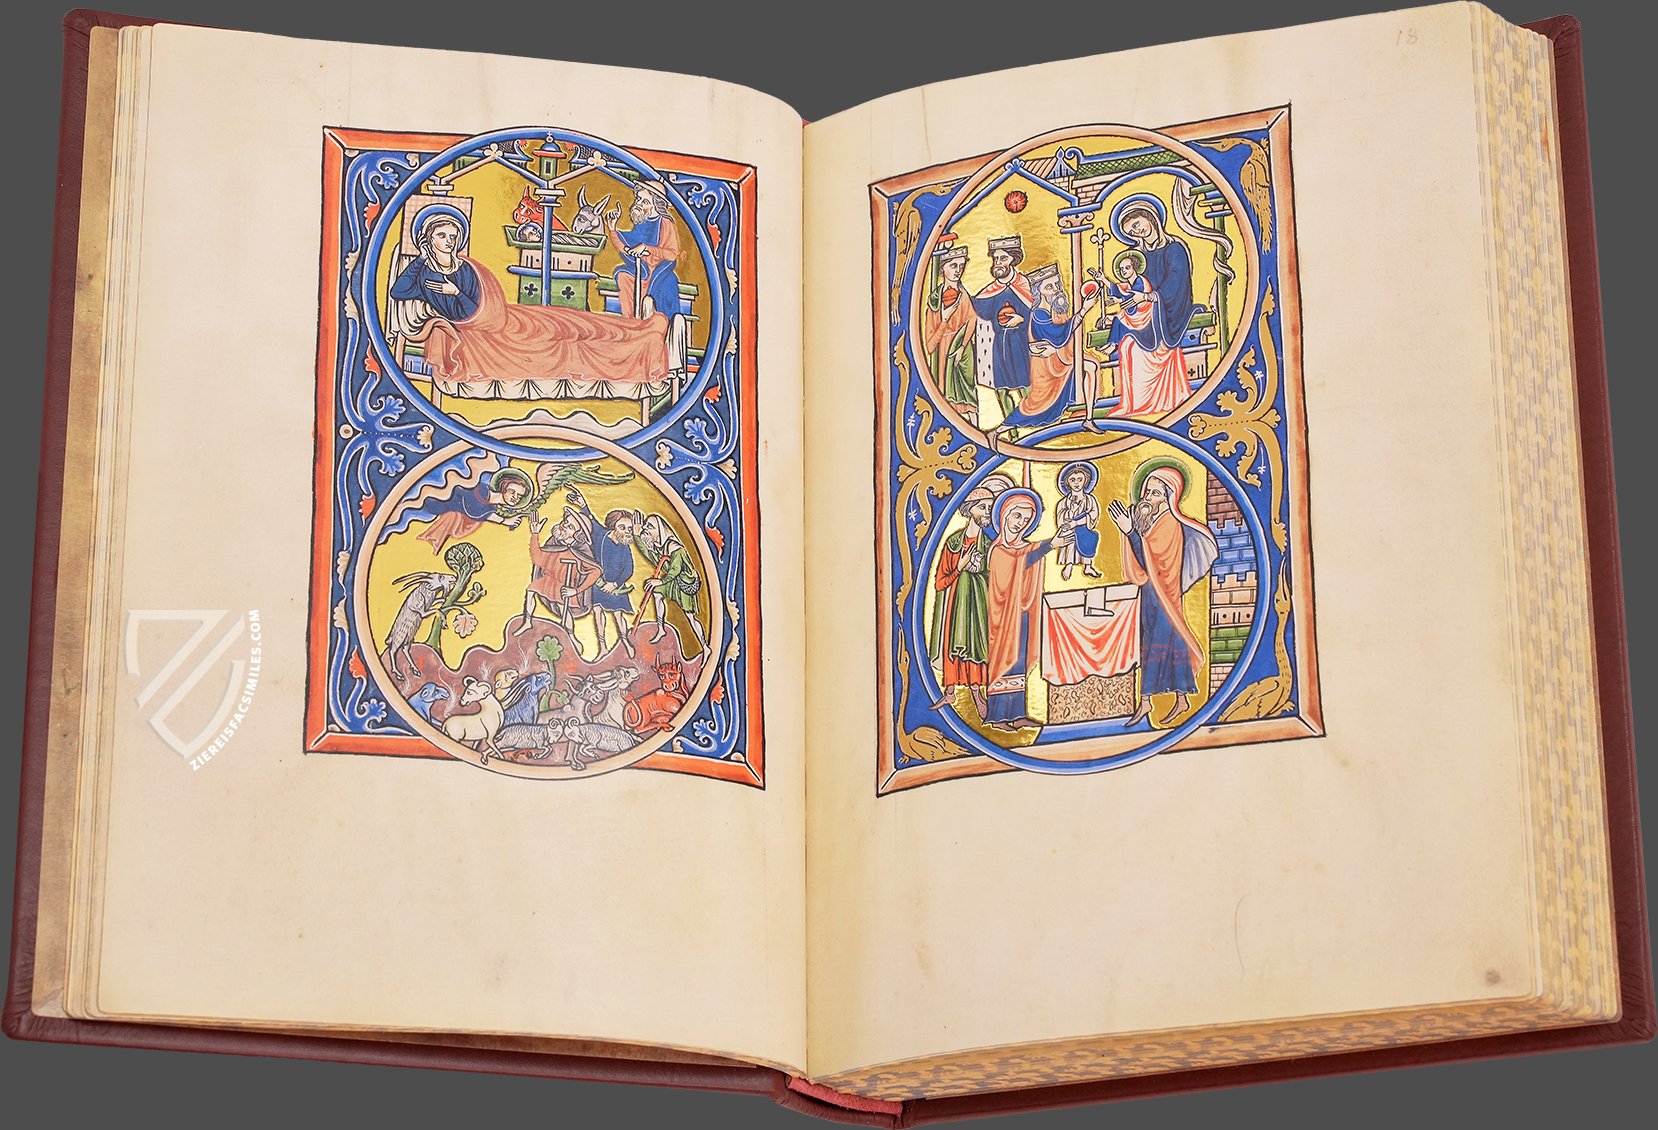 18
ZIEREISFACSIMILES.COM